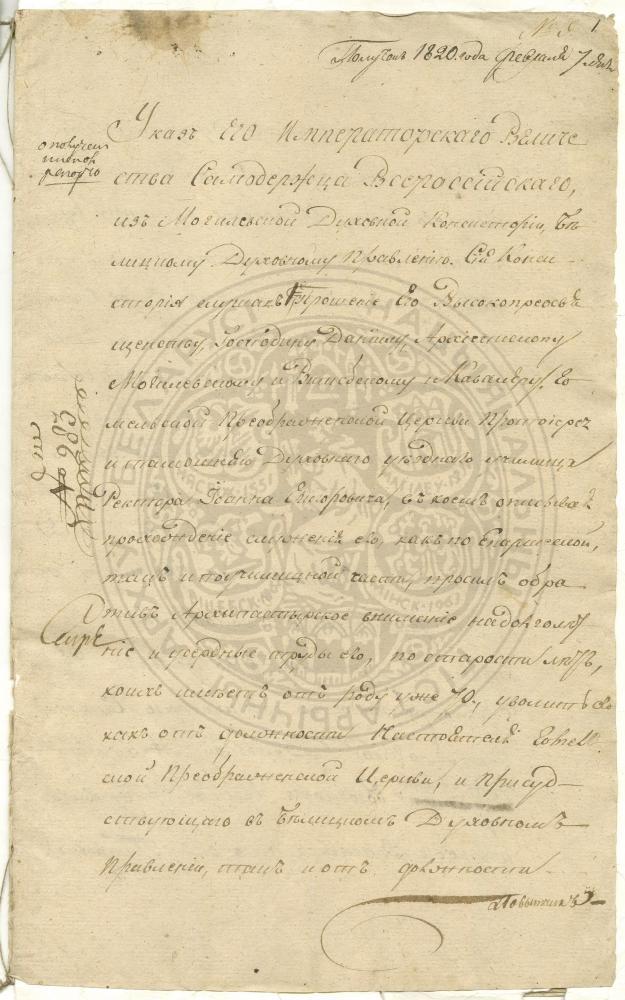 Получен 1820 года февраля 7 дня
о получении
репорто
Указъ Его Императорскаго Величе
ства Самодержца Всероссійскаго,
изъ Могилевской Духовной Консисторіи, Бѣ
лицкому Духовному Правленію. Сія Конси
сторія слушавъ Прошеніе Его Высокопреосвя
щенству, Господину Даніилу, Архіепископу
Могилевскому и Витебскому и Кавалеру, Го
мельской Преображенской Церкви Протоіерея
и тамошняго Духовнаго уѣзднаго училища
Ректора Іоанна Григоровича, въ коемъ описывая
прохожденіе служенія его, какъ по Епаршеской,
такъ и по училищной части, просилъ обра
тивъ Архипастырское вниманіе на долголѣт
ніе и усердные труды его, по старости лѣтъ,
коихъ имѣетъ отъ роду уже 70, уволить его
какъ отъ должности Настоятеля Гомель
ской Преображенской Церкви, и Присуд
ствующаго въ Бѣлицкомъ Духовномъ
Правленіи, такъ и отъ должности